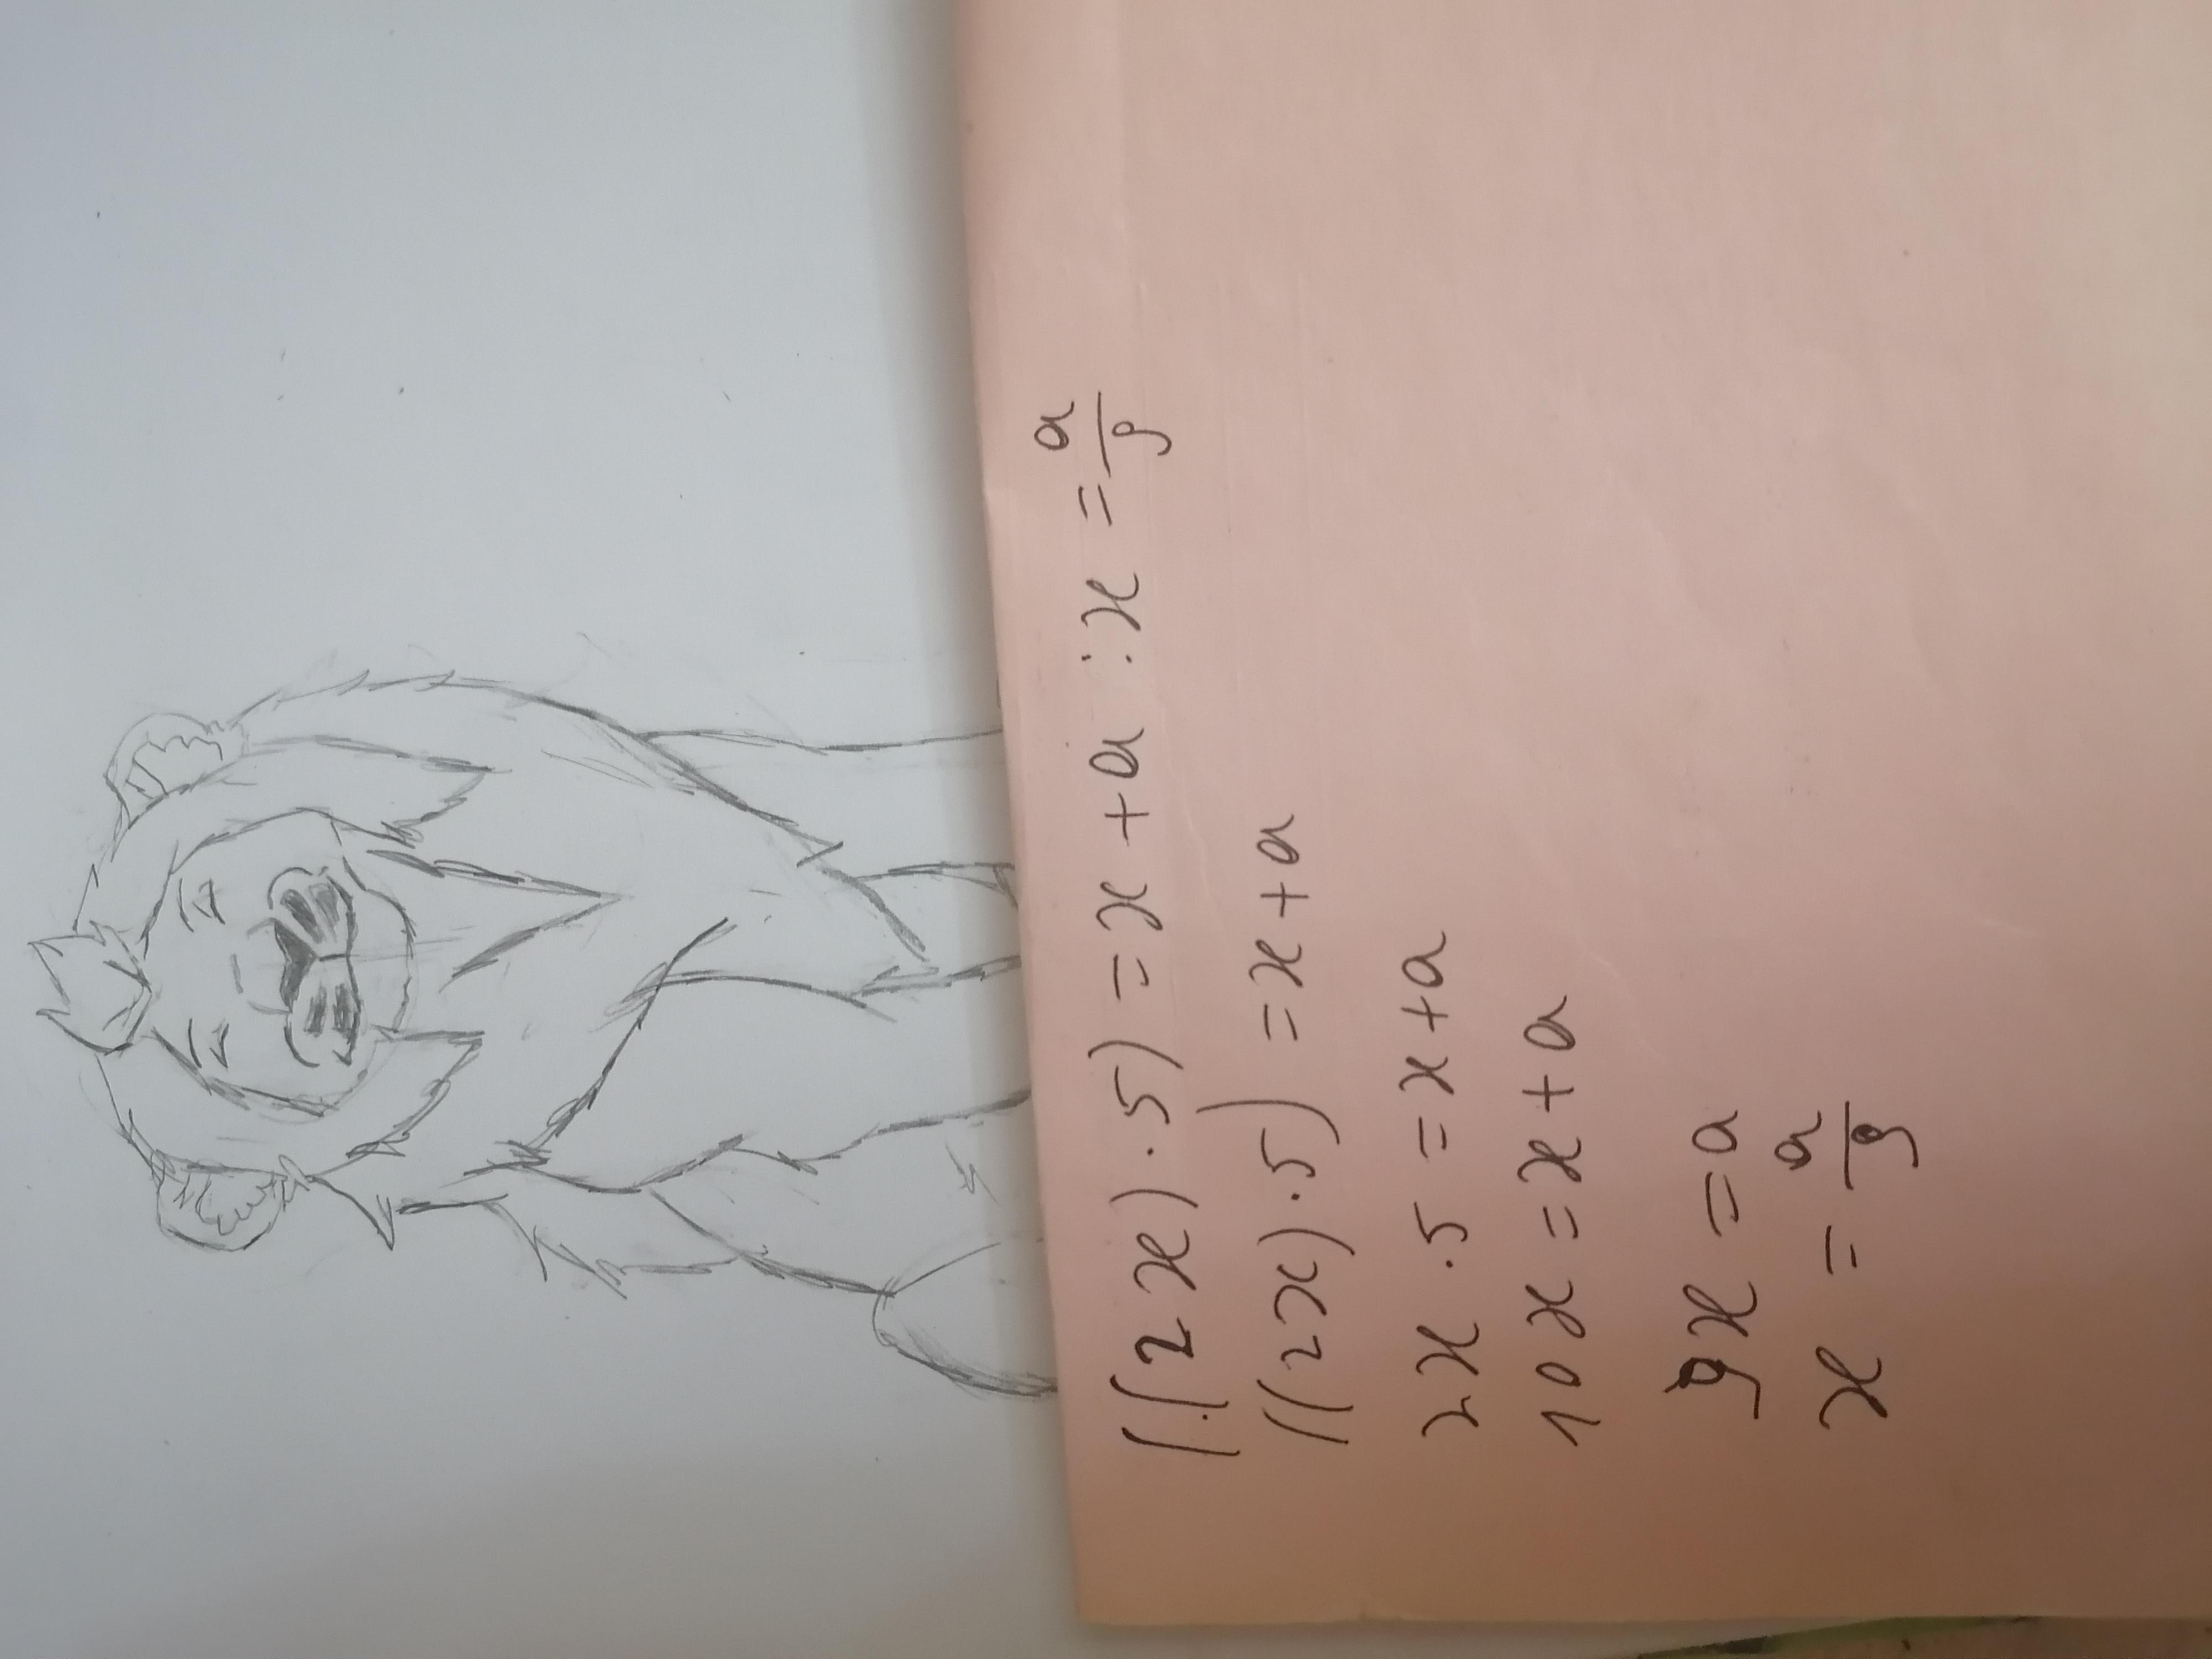 ((2x).5) = x + a : x = a/9
((2x).5) = x + a
2x . 5 = x + a
10x = x + a
9x = a
x = a/9